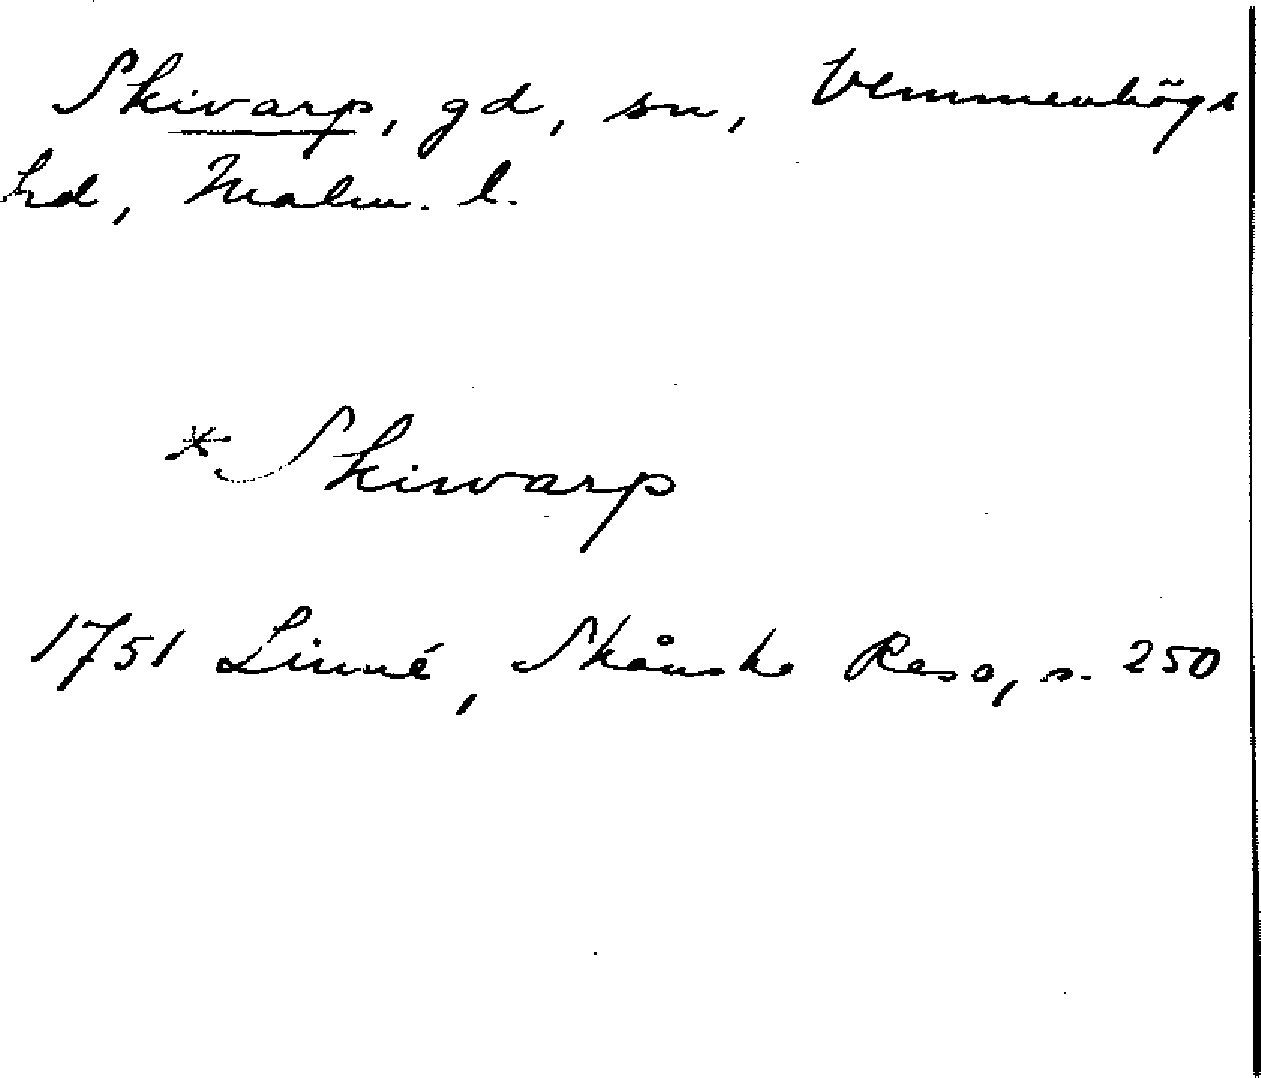 Skivarp, gd, sn, Vemmenhögs
hd, Malm. l.
*Skiwarp
1751 Linné, Skånska Resa, s. 250